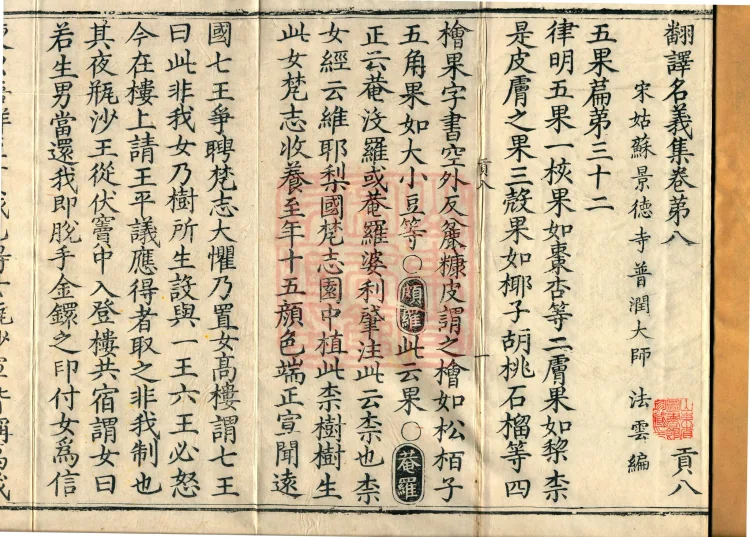 翻譯名義集卷第八　貢八
宋姑蘇景德寺普潤大師　法雲編
五果篇第三十二
律明五果一核果如棗杏等二膚果如棃柰
是皮膚之果三殼果如椰子胡桃石榴等四
檜果字書空外反麁糠皮謂之檜如松栢子
五角果如大小豆等○頗羅此云果○菴羅
正云菴沒羅或菴羅婆利肇注此云柰也柰
女經云維耶梨國梵志園中植此柰樹樹生
此女梵志收養至年十五顏色端正宣聞遠
貢八
國七王爭聘梵志大懼乃置女高樓謂七王
曰此非我女乃樹所生設與一王六王必怒
今在樓上請王平議應得者取之非我制也
其夜瓶沙王從伏竇中入登樓共宿謂女曰
若生男當還我即脫手金鐶之印付女爲信